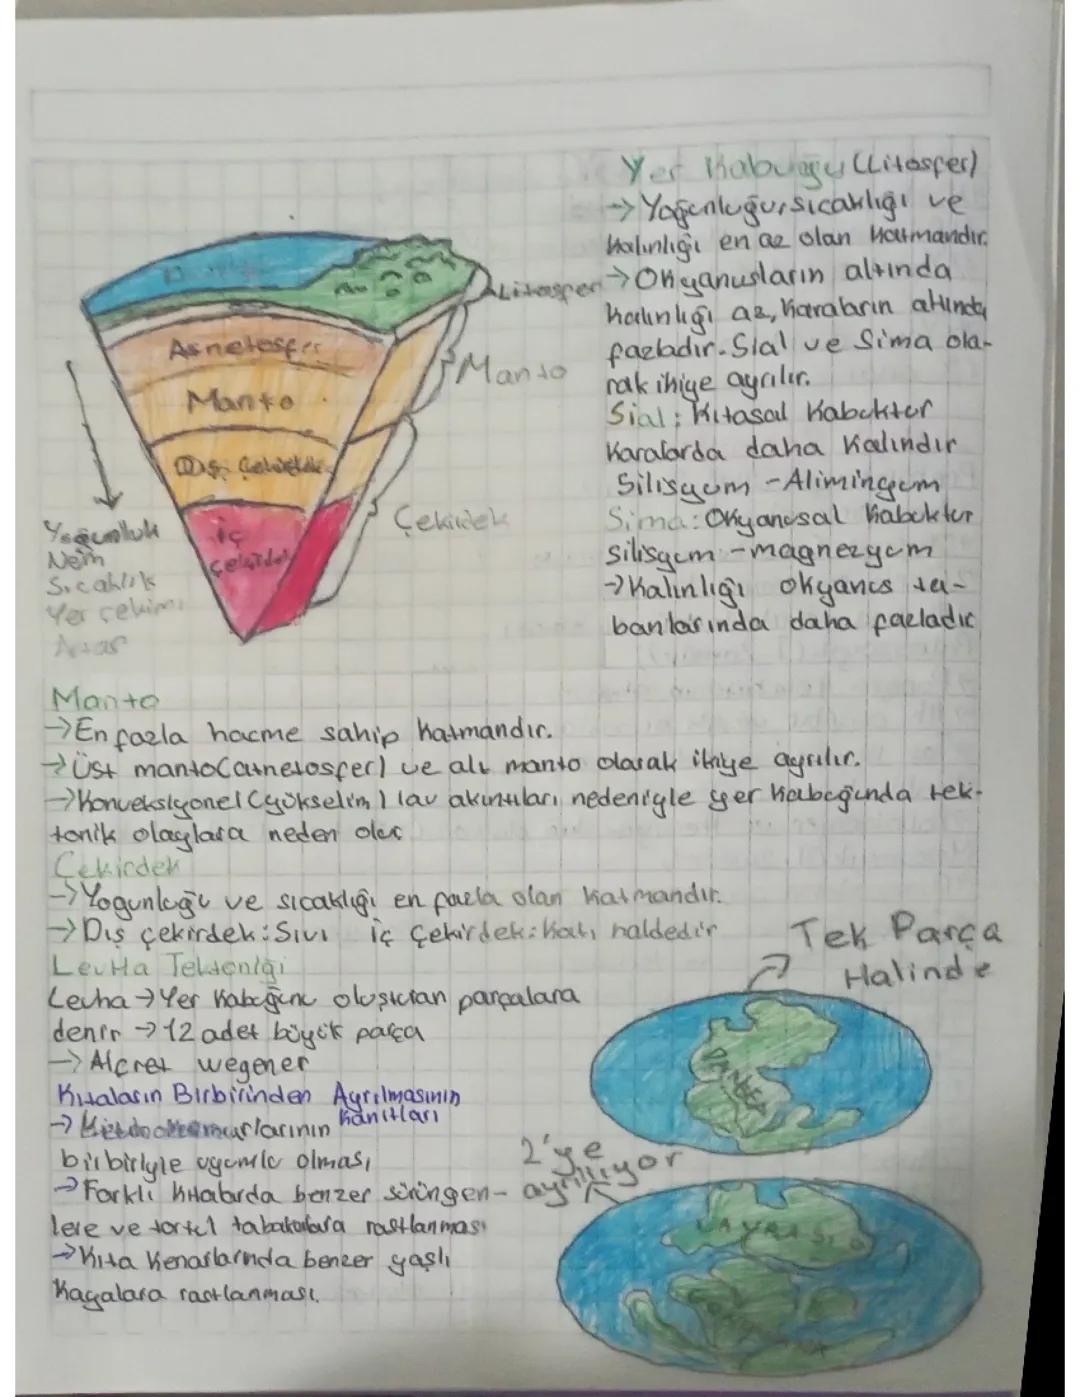 Yer Kabuğu (Litosfer)
→ Yoğunluğu, sıcaklığı ve
kalınlığı en az olan katmandır.
→ Okyanusların altında
kalınlığı az, karaların altında
fazladır. Sial ve Sima ola-
rak ikiye ayrılır.
Sial : Kıtasal Kabuktur
Karalarda daha Kalındır
Silisyum - Aliminyum
Sima : Okyanusal Kabuktur
silisyum - magnezyum
→ Kalınlığı okyanus ta-
banlarında daha fazladır
Litosfer
Asnetosfer
Manto
Manto
Dış Çekirdek
Çekirdek
iç
Çekirdek
Yoğunluk
Nem
Sıcaklık
Yer çekimi
Artar
Manto
→ En fazla hacme sahip katmandır.
→ Üst manto (atnetosfer) ve alt manto olarak ikiye ayrılır.
→ Konveksiyonel (yükselim) lav akıntıları nedeniyle yer kabuğunda tek-
tonik olaylara neden olur
Çekirdek
→ Yogunluğu ve sıcaklığı en fazla olan katmandır.
→ Dış çekirdek : Sıvı iç Çekirdek : Katı haldedir
Levha Tektoniği
Levha → Yer Kabuğunu oluşturan parçalara
denir → 12 adet büyük parça
→ Alfret wegener
Kıtaların Birbirinden Ayrılmasının
Kanıtları
→ kenarlarının
birbiriyle uyumlu olması
→ Farklı kıtalarda benzer sürüngen-
lere ve tortul tabakalara rastlanması
→ Kıta Kenarlarında benzer yaşlı
Kayalara rastlanması.
Tek Parça
Halinde
PANGEA
2'ye
ayrılıyor
LAVRASYA
GONDWANA